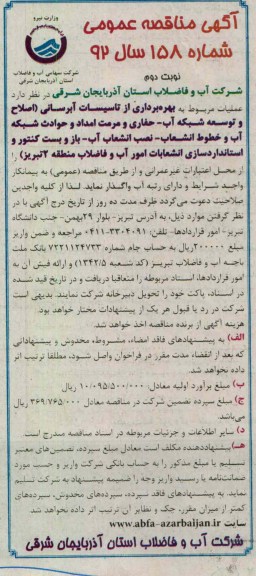 آگهی مناقصه عمومی
شماره ۱۵۸ سال ۹۲
وزارت نیرو
شرکت سهامی آب و فاضلاب
استان آذربایجان شرقی
نوبت دوم
شرکت آب و فاضلاب استان آذربایجان شرقی در نظر دارد
عملیات مربوط به بهره‌برداری از تاسیسات آبرسانی (اصلاح
و توسعه شبکه آب- حفاری و مرمت امداد و حوادث شبکه
آب و خطوط انشعاب- نصب انشعاب آب- باز و بست کنتور و
استانداردسازی انشعابات امور آب و فاضلاب منطقه ۲ تبریز) را
از محل اعتبارات غیرعمرانی و از طریق مناقصه (عمومی) به پیمانکار
واجد شرایط و دارای رتبه آب واگذار نماید. لذا از کلیه واجدین
صلاحیت دعوت می‌گردد ظرف مدت ده روز از تاریخ درج آگهی با در
نظر گرفتن موارد ذیل، به آدرس تبریز- بلوار ۲۹بهمن- جنب دانشگاه
تبریز- امور قراردادها- تلفن: ۳۳۰۴۰۹۱-۰۴۱۱ مراجعه و ضمن واریز
مبلغ ۲۰۰۰۰۰ریال به حساب جام شماره ۷۲۲۱۱۲۴۷۳۳ بانک ملت
باجه آب و فاضلاب تبریز (کد شعبه ۱۳۴۲/۵) و ارائه فیش آن به
امور قراردادها، اسناد مربوطه را متعاقبا دریافت و در تاریخ قید شده
در اسناد، پاکت خود را تحویل دبیرخانه شرکت نمایند. بدیهی است
شرکت در رد یا قبول هر یک از پیشنهادات مختار خواهد بود.
هزینه آگهی از برنده مناقصه اخذ خواهد شد.
الف) به پیشنهادهای فاقد امضاء، مشروط، مخدوش و پیشنهاداتی
که بعد از انقضاء مدت مقرر در فراخوان واصل شود، مطلقا ترتیب اثر
داده نخواهد شد.
ب) مبلغ برآورد اولیه معادل: ۱۰/۰۹۵/۵۰۰/۰۰۰ ریال
ج) مبلغ سپرده تضمین شرکت در مناقصه معادل ۳۶۹/۷۶۵/۰۰۰ ریال
می‌باشد.
د) سایر اطلاعات و جزئیات مربوطه در اسناد مناقصه مندرج است.
هـ) پیشنهاددهنده مکلف است معادل مبلغ سپرده، تضمین‌های معتبر
تسلیم یا مبلغ مذکور را به حساب بانکی شرکت واریز و حسب مورد
ضمانت‌نامه یا رسید واریز وجه را ضمیمه پیشنهاد به شرکت تسلیم
نماید. به پیشنهادهای فاقد سپرده، سپرده‌های مخدوش، سپرده‌های
کمتر از میزان مقرر، چک و نظایر آن ترتیب اثر داده نخواهد شد.
سایت www.abfa-azarbaijan.ir
شرکت آب و فاضلاب استان آذربایجان شرقی